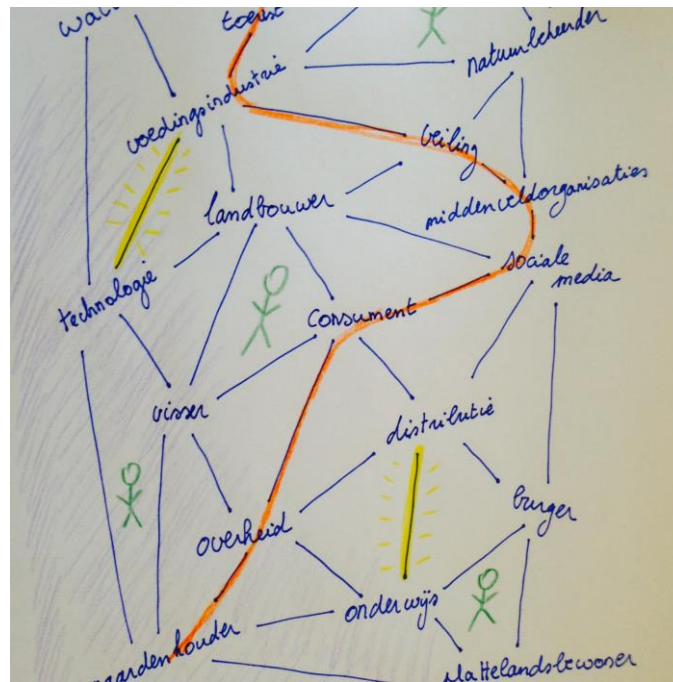 toerist
natuurbeheerder
voedingsindustrie
veiling
landbouwer
middenveldorganisaties
sociale
media
technologie
consument
visser
distributie
burger
overheid
onderwijs
aardenhouder
plattelandsbewoner